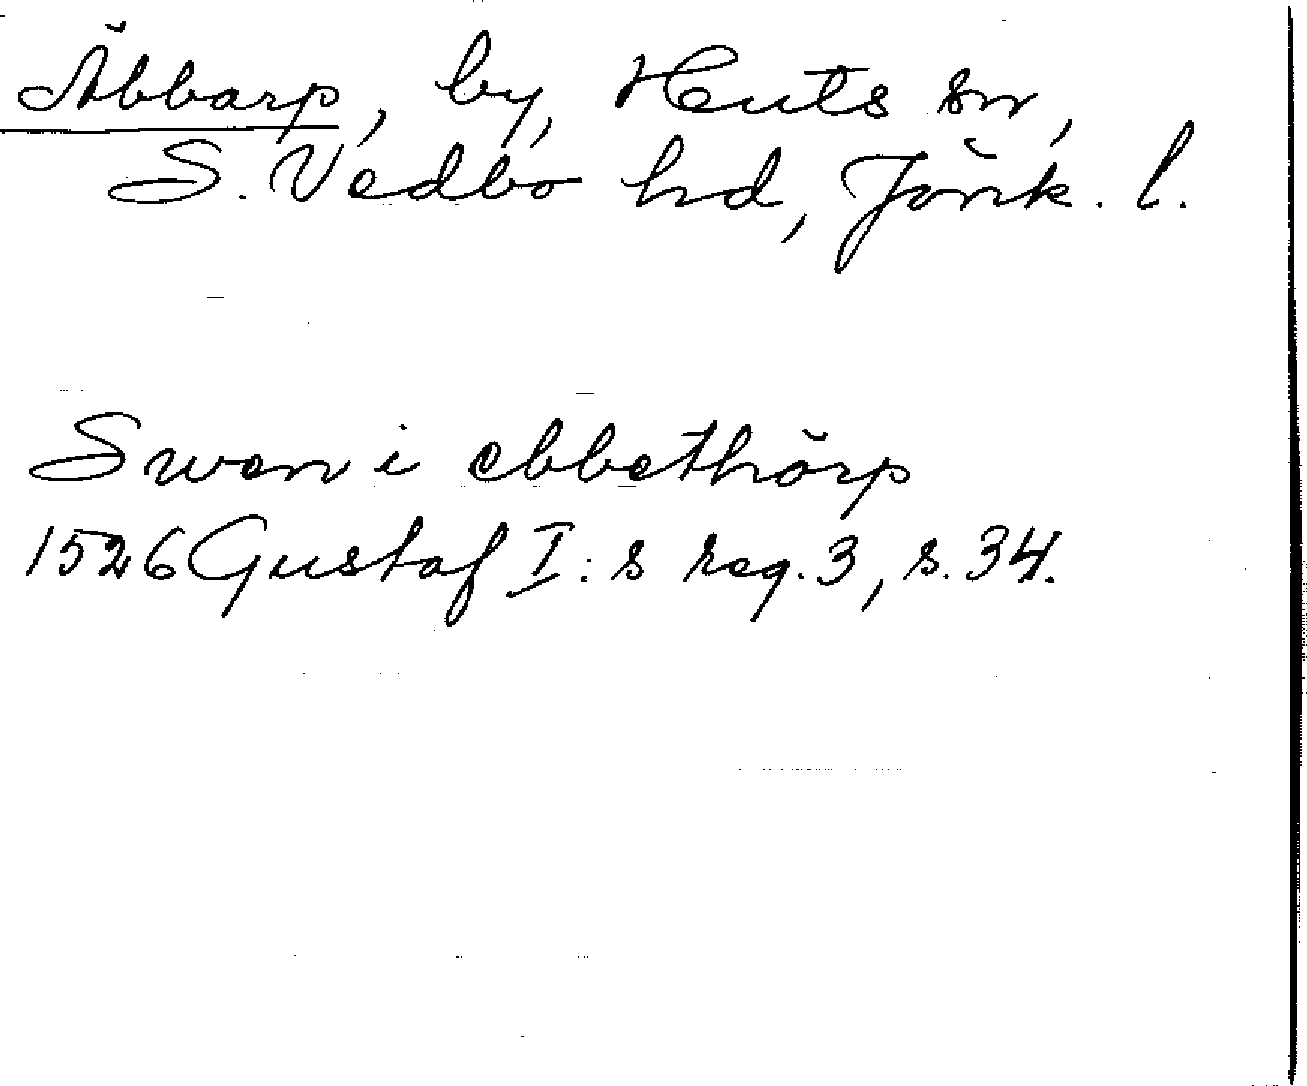 Äbbarp, by, Hults sn,
S. Vedbo hd, Jönk. l.
Swen i ebbethörp
1526 Gustaf I:s reg. 3, s. 34.